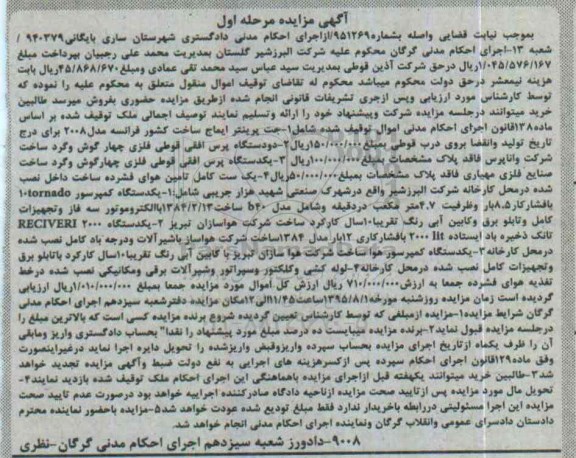 آگهی مزایده مرحله اول
بموجب نیابت قضایی واصله بشماره۹۵۱۲۶۹/ازاجرای احکام مدنی دادگستری شهرستان ساری بایگانی۹۴۰۳۷۹ /
شعبه ۱۳-اجرای احکام مدنی گرگان محکوم علیه شرکت البرزشیر گلستان بمدیریت محمد علی رجبیان بپرداخت مبلغ
۱/۰۴۵/۵۷۶/۱۶۷ریال درحق شرکت آذین قوطی بمدیریت سید عباس سید محمد تقی عمادی ومبلغ۴۵/۸۶۸/۶۷۰ریال بابت
هزینه نیمعشر درحق دولت محکوم میباشد محکوم له تقاضای توقیف اموال منقول متعلق به محکوم علیه را نموده که
توسط کارشناس مورد ارزیابی وپس ازجری تشریفات قانونی انجام شده ازطریق مزایده حضوری بفروش میرسد طالبین
خرید میتوانند درجلسه مزایده شرکت وپیشنهاد خود را ارائه وتسلیم نمایند توصیف اجمالی ملک توقیف شده بر اساس
ماده۱۳۸قانون اجرای احکام مدنی اموال توقیف شده شامل۱-جت پرینتر ایماج ساخت کشور فرانسه مدل۲۰۰۸ برای درج
تاریخ تولید وانقضا بروی درب قوطی بمبلغ۱۵۰/۰۰۰/۰۰۰ریال۲-دودستگاه پرس افقی قوطی فلزی چهار گوش وگرد ساخت
شرکت واناپرس فاقد پلاک مشخصات بمبلغ۱۰۰/۰۰۰/۰۰۰ریال ۳-یکدستگاه پرس افقی قوطی فلزی چهارگوش وگرد ساخت
صنایع فلزی مهیاری فاقد پلاک مشخصات بمبلغ۵۰/۰۰۰/۰۰۰ریال۴-یک ست کامل تامین هوای فشرده ساخت داخل نصب
شده درمحل کارخانه شرکت البرزشیر واقع درشهرک صنعتی شهید هزار جریبی شامل:۱-یکدستگاه کمپرسور ۱۰tornado
بافشارکار۸.۵بار وظرفیت ۴.۷متر مکعب دردقیقه وشامل مدل b۴۰ ساخت ۱۳۸۴/۲/۱۳باالکتروموتور سه فاز وتجهیزات
کامل وتابلو برق وکابین آبی رنگ تقریبا۱۰سال کارکرد ساخت شرکت هواسازان تبریز ۲-یکدستگاه RECIVERI ۲۰۰۰
تانک ذخیره باد ایستاده ۲۰۰۰ lit بافشارکاری ۱۲بار مدل ۱۳۸۴ساخت شرکت هواساز باشیرآلات ودرجه باد کامل نصب شده
درمحل کارخانه۳-یکدستگاه کمپرسور هواساخت شرکت هوا سازی تبریز با کابین آبی رنگ تقریبا۱۰سال کارکرد باتابلو برق
وتجهیزات کامل نصب شده درمحل کارخانه۴-لوله کشی وکلکتور وسپراتور وشیرآلات برقی ومکانیکی نصب شده درخط
تغذیه هوای فشرده جمعا به ارزش۷۱۰/۰۰۰/۰۰۰ ریال ارزش کل اموال مورد مزایده جمعا بمبلغ ۱/۰۱۰/۰۰۰/۰۰۰ریال ارزیابی
گردیده است زمان مزایده روزشنبه مورخه۱۳۹۵/۸/۱ساعت۱۱/۴۵الی۱۲مکان مزایده دفترشعبه سیزدهم اجرای احکام مدنی
گرگان شرایط مزایده۱-مزایده ازمبلغی که توسط کارشناس تعیین گردیده شروع برنده مزایده کسی است که بالاترین مبلغ را
درجلسه مزایده قبول نماید۲-برنده مزایده میبایست ده درصد مبلغ مورد پیشنهاد را نقدا" بحساب دادگستری واریز ومابقی
آن را ظرف یکماه ازتاریخ اجرای مزایده بحساب سپرده واریزوقبض واریزشده را تحویل دایره اجرا نماید درغیراینصورت
وفق ماده۱۲۹قانون اجرای احکام سپرده پس ازکسرهزینه های اجرایی به نفع دولت ضبط وآگهی مزایده تجدید خواهد
شد۳-طالبین خرید میتوانند یکهفته قبل ازاجرای مزایده باهماهنگی این اجرای احکام ملک توقیف شده بازدید نمایند۴-
تحویل مال مورد مزایده پس ازتایید صحت مزایده ازناحیه دادگاه صادرکننده اجراییه خواهد بود درصورت عدم تایید صحت
مزایده این اجرا مسئولیتی دررابطه باخریدار ندارد فقط مبلغ تودیع شده عودت خواهد شد۵-مزایده باحضور نماینده محترم
دادستان دادسرای عمومی وانقلاب گرگان ونماینده اجرای احکام مدنی انجام خواهد شد.
۹۰۰۸-دادورز شعبه سیزدهم اجرای احکام مدنی گرگان-نظری